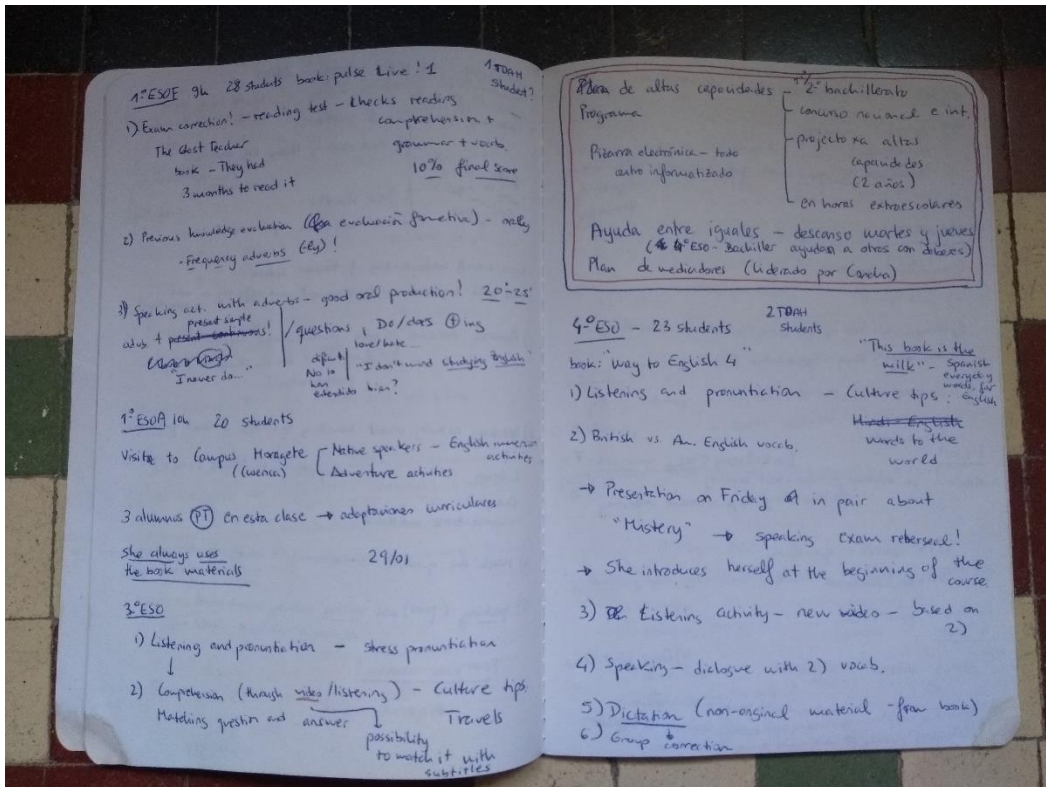 1º ESOE 9h 28 students book: pulse Live! 1
1 TDAH
student?
1) Exam correction! - reading test - checks reading
comprehension +
grammar + vocab.
10% final score
The Ghost Teacher
book - They had
3 months to read it
2) Previous knowledge evaluation (evaluación formativa) - orally
- Frequency adverbs (-ly)!
3) Speaking act. with adverbs - good oral production! 20'-25'
adv. + present simple
present continuous!
"I never do..."
/questions, Do/does + ing
love/hate...
"I don't mind studying English"
No lo
han
entendido bien?
1º ESOA 10h 20 students
Visit to Campus Moragete
(Cuenca)
Native speakers - English immersion
activities
Adventure activities
3 alumnos PT en esta clase → adaptaciones curriculares
She always uses
the book materials
29/01
3º ESO
1) Listening and pronuntiation - stress pronuntiation
↓
2) Comprehension (through video/listening) - Culture tips.
Matching question and answer
Travels
possibility
to watch it with
subtitles
de altas capacidades - 1º/2º bachillerato
Programa
- concurso nacional e int.
- projecto xa altas
capacidades
(2 años)
en horas extraescolares
Pizarra electrónica - todo
centro informatizado
Ayuda entre iguales - descanso martes y jueves
(4º ESO - Bachiller ayudan a otros con deberes)
Plan de mediadores (Liderado por Concha)
4º ESO - 23 students
2 TDAH
students
book: "Way to English 4"
"This book is the
milk" - Spanish
everyday
words for
English
1) Listening and pronuntiation - Culture tips:
words to the
world
2) British vs Am. English vocab.
→ Presentation on Friday in pair about
"Mistery" → speaking exam rehersal!
→ She introduces herself at the beginning of the
course
3) Listening activity - new video - based on
2)
4) Speaking - dialogue with 2) vocab.
5) Dictation (non-original material - from book)
6) Group correction